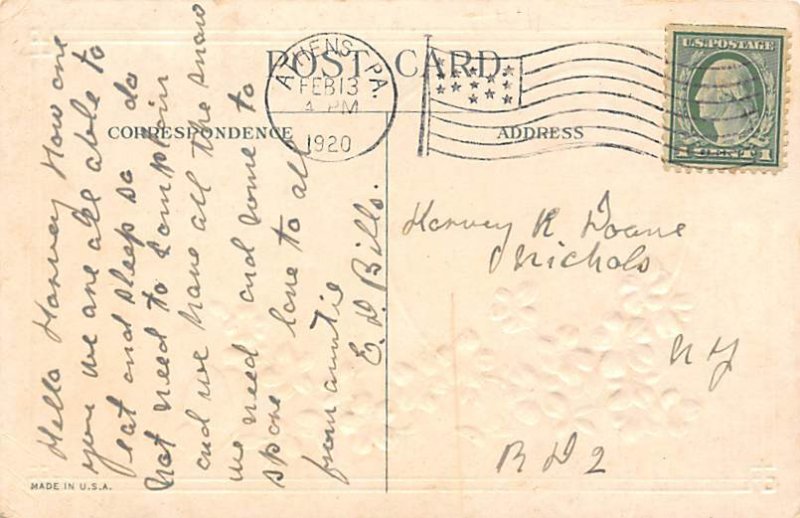 POST CARD
ATHENS, PA.
FEB 13
4 PM
1920
U.S. POSTAGE
1 CENT 1
CORRESPONDENCE
ADDRESS
Hello Harvey How are
you we are all able to
eat and sleep so do
not need to complain
and we have all the snow
we need and some to
spare love to all
from auntie
E. D. Bills.
Harvey K Doane
Nichols
N Y
R D 2
MADE IN U.S.A.